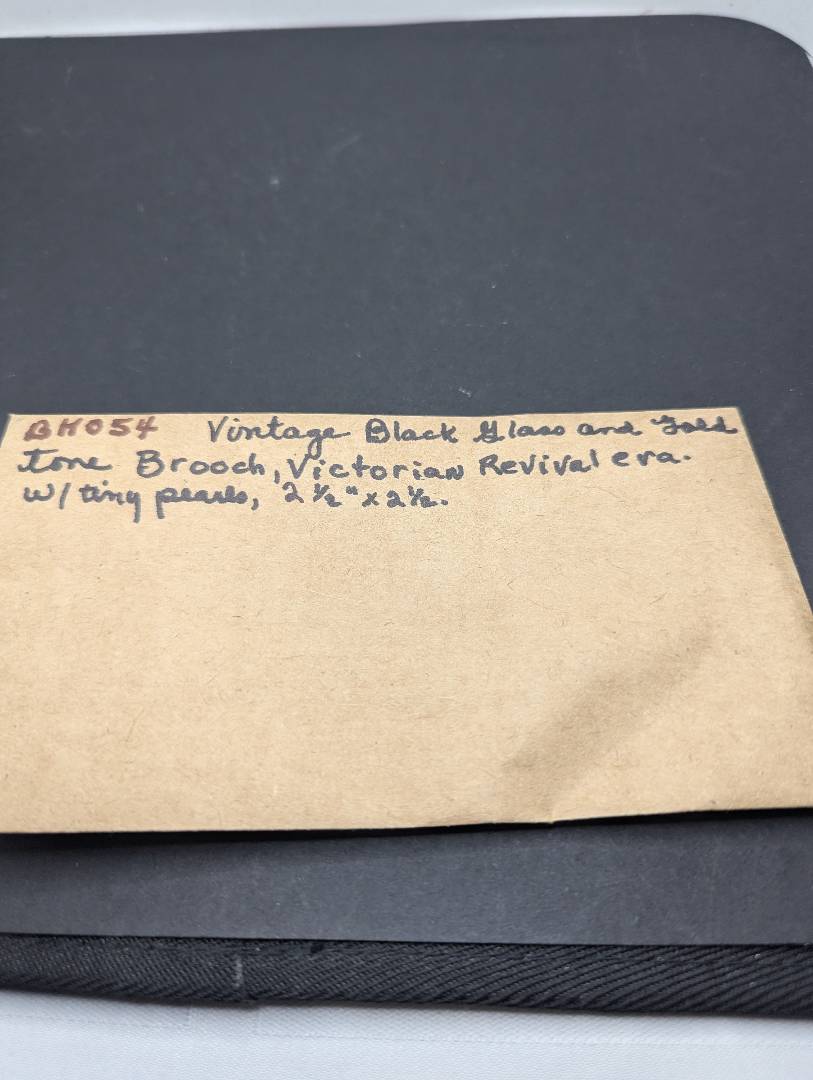 BH054 Vintage Black Glass and Gold
tone Brooch, Victorian Revival era.
w/ tiny pearls, 2 1/2" x 2 1/2.